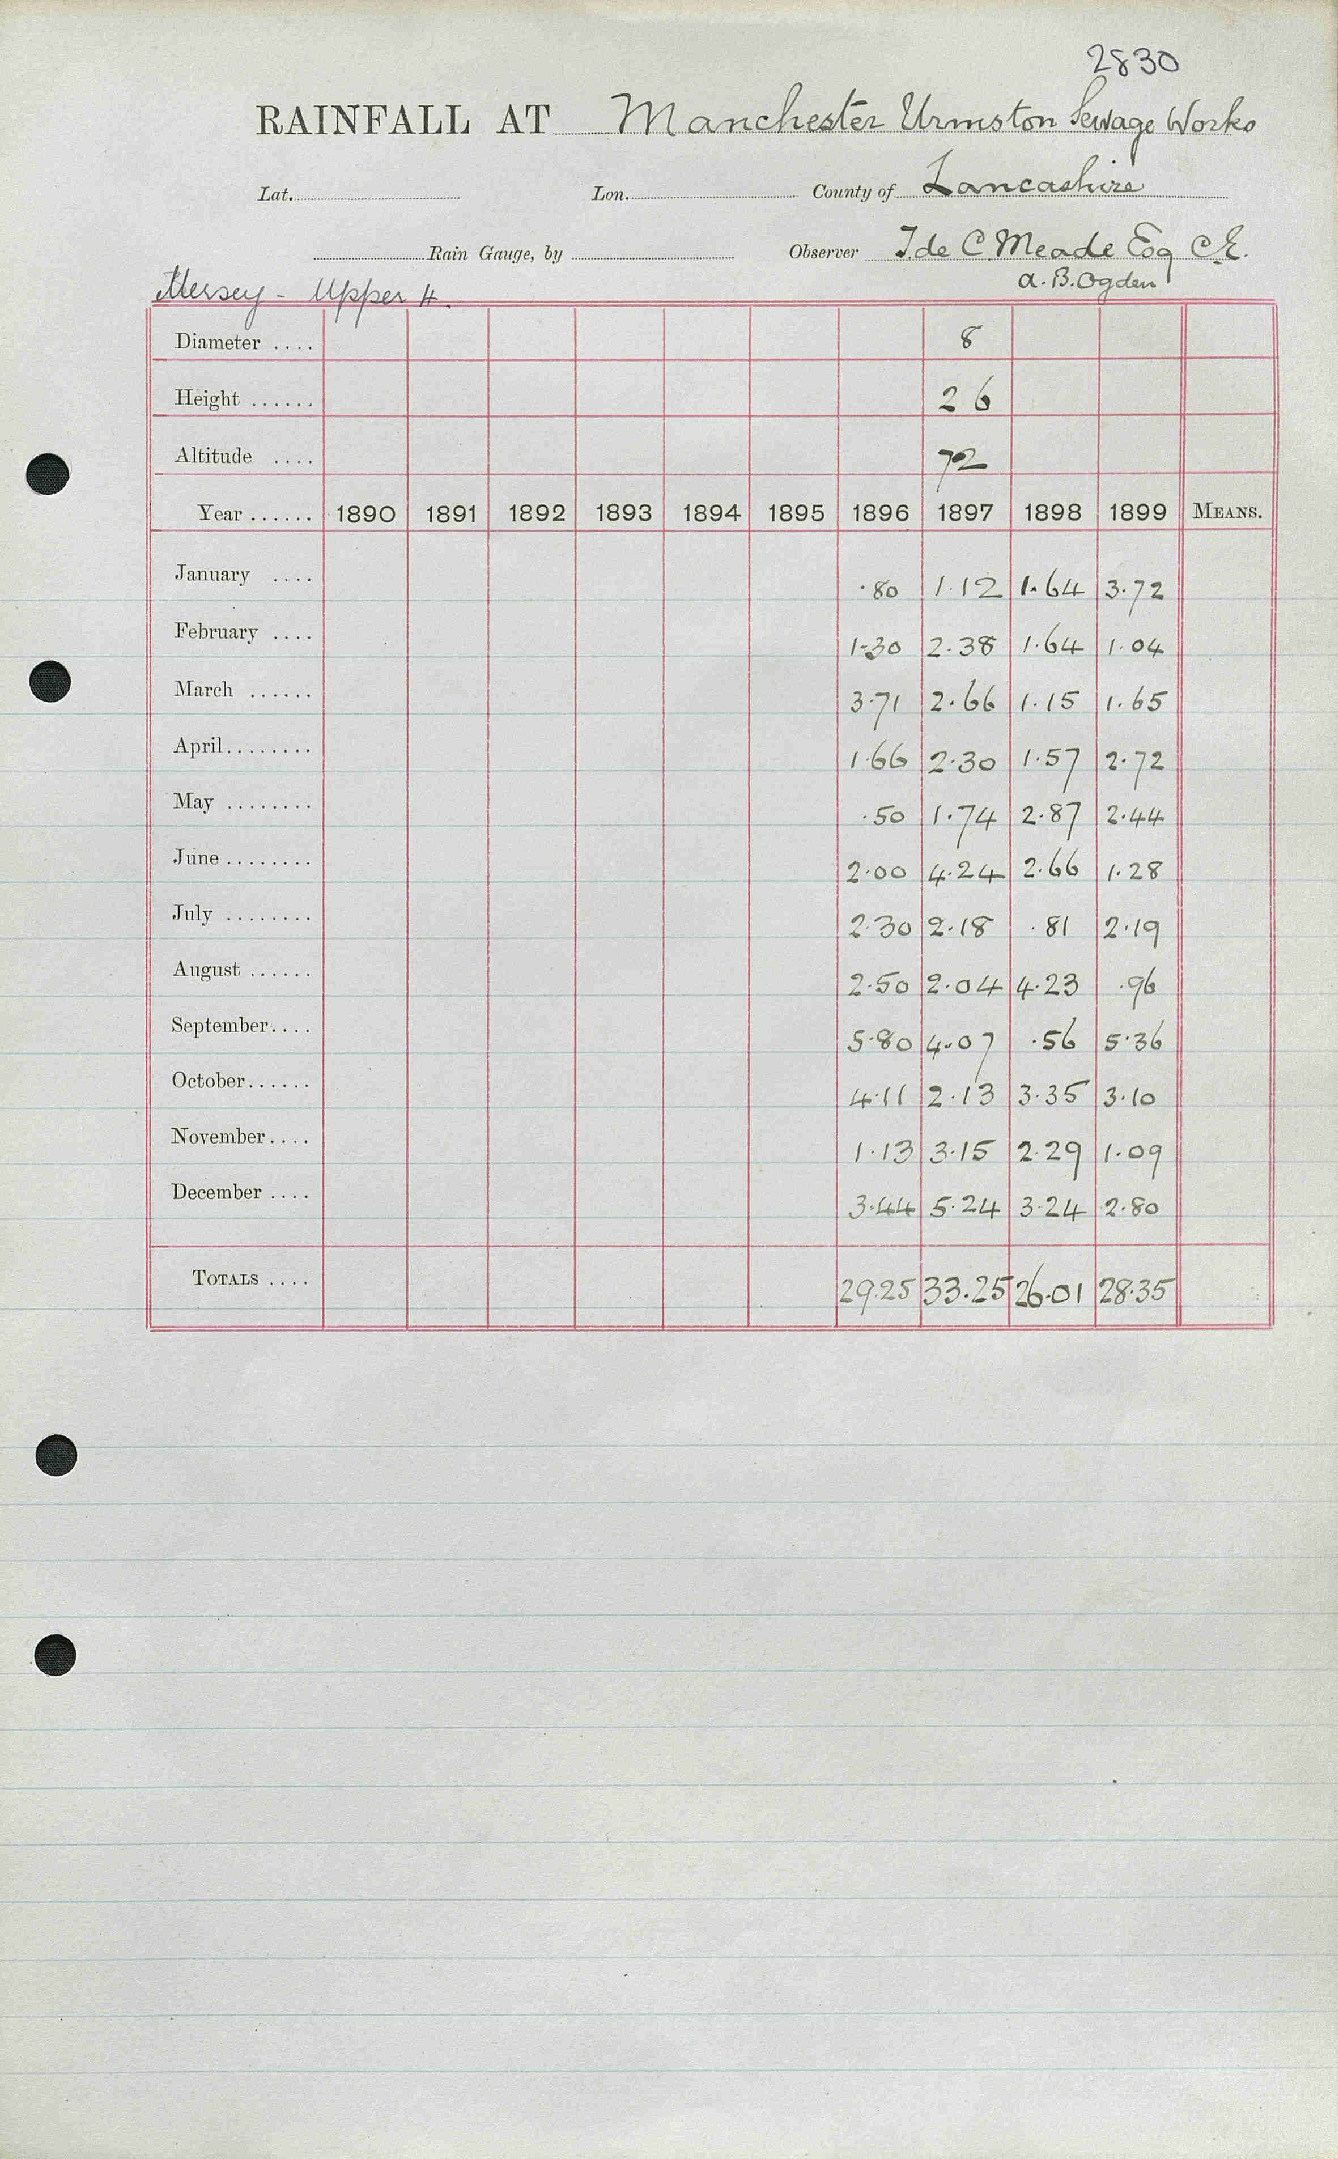 2830
RAINFALL AT Manchester Urmston Sewage Works
Lat. Lon. County of Lancashire
Rain Gauge, by Observer T. de C. Meade Esq C.E.
A. B. Ogden
Mersey - Upper 4.
Diameter .... 8
Height ...... 26
Altitude .... 72
Year ...... 1890 1891 1892 1893 1894 1895 1896 1897 1898 1899 MEANS.
January .... .80 1.12 1.64 3.72
February .... 1.30 2.38 1.64 1.04
March ...... 3.71 2.66 1.15 1.65
April........ 1.66 2.30 1.57 2.72
May ........ .50 1.74 2.87 2.44
June ........ 2.00 4.24 2.66 1.28
July ........ 2.30 2.18 .81 2.19
August ...... 2.50 2.04 4.23 .96
September.... 5.80 4.07 .56 5.36
October...... 4.11 2.13 3.35 3.10
November.... 1.13 3.15 2.29 1.09
December .... 3.44 5.24 3.24 2.80
TOTALS .... 29.25 33.25 26.01 28.35